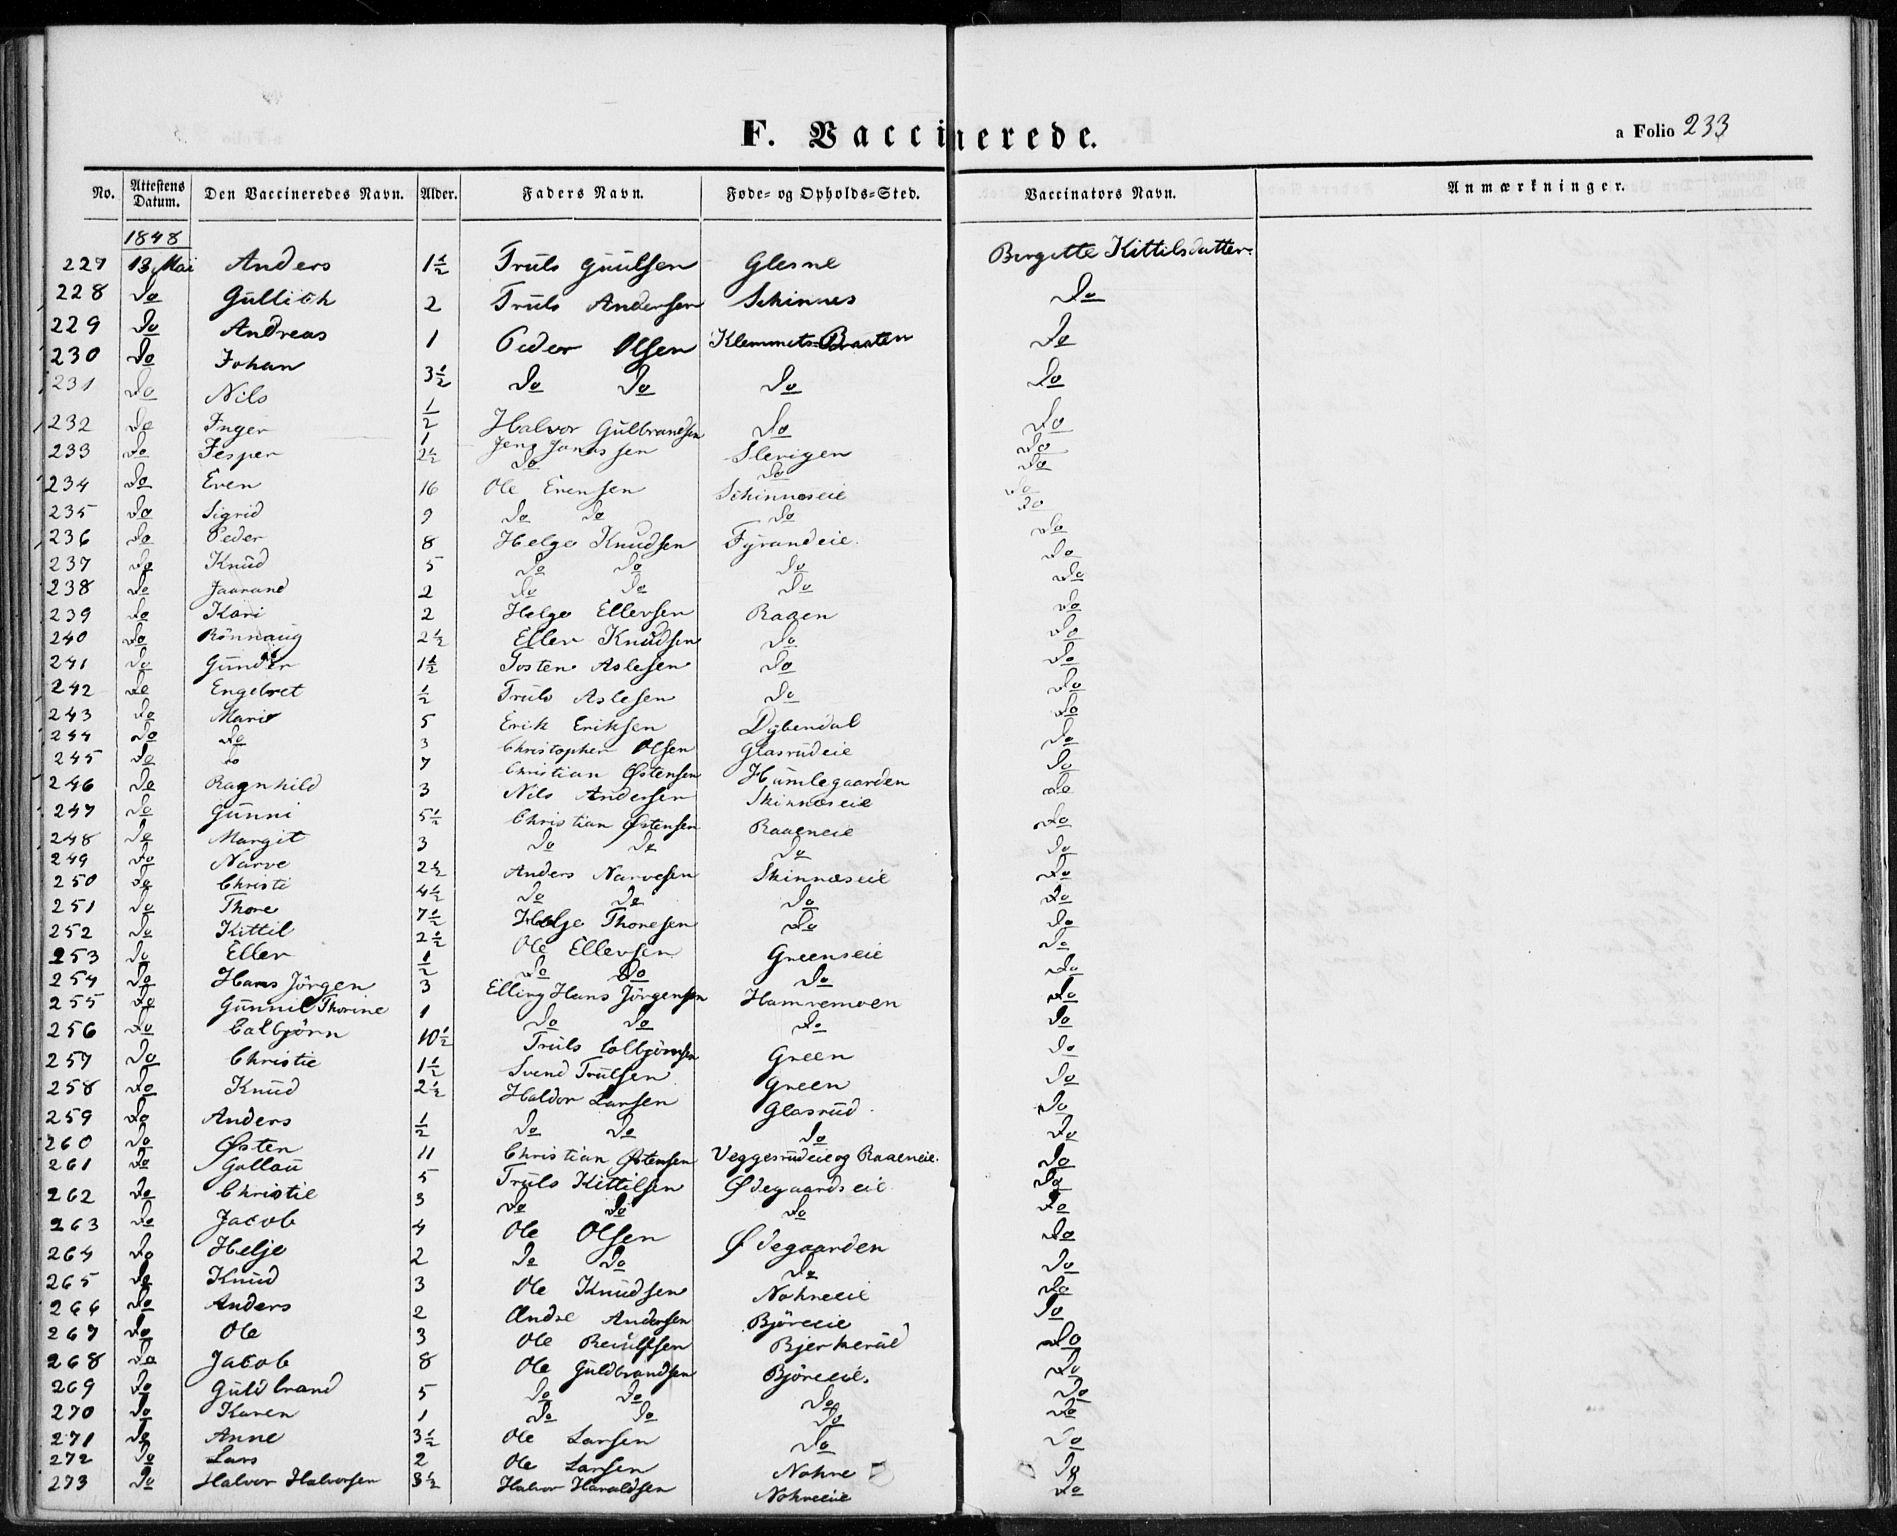 F. Vaccinerede.
a Folio 233
No. Attestens Datum. Den Vaccineredes Navn. Alder. Faders Navn. Føde- og Opholds-Sted. Vaccinators Navn. Anmærkninger.
1848
227 13 Mai Anders 1½ Truls Guulsen Glesne Birgitte Kittilsdatter
228 Do Gullith 2 Truls Andersen Schinnes Do
229 Do Andreas 1 Peder Olsen Klemmets-Braaten Do
230 Do Johan 3½ Do Do Do Do
231 Do Nils ½ Halvor Gulbrandsen Do Do
232 Do Inger 1 Jens Slevigen Do
233 Do Jesper 2½ Do Do Do
234 Do Even 16 Ole Evensen Schinnæseie Do
235 Do Sigrid 9 Do Do Do Do
236 Do Peder 8 Helge Knudsen Fyrandeie Do
237 Do Knud 5 Do Do Do Do
238 Do Jaarand 2 Do Do Do Do
239 Do Kari 2 Helge Ellevsen Raaen Do
240 Do Rönnaug 2½ Ellev Knudsen Do Do
241 Do Gunder 1½ Tosten Aslesen Do Do
242 Do Engebret ½ Truls Aslesen Do Do
243 Do Marie 5 Erik Eriksen Dybendal Do
244 Do Do 3 Christopher Olsen Glasrudeie Do
245 Do Do 7 Christian Østensen Humlegaarden Do
246 Do Ragnhild 3 Nils Andersen Skinnæseie Do
247 Do Gunni 5½ Christian Østensen Raaeneie Do
248 Do Margit 3 Do Do Do Do
249 Do Narve 2½ Anders Narvesen Skinnæseie Do
250 Do Christi 4½ Do Do Do Do
251 Do Thore 7½ Helje Thoresen Do Do
252 Do Kittil 2½ Ole Ellevsen Greenseie Do
253 Do Ellev ½ Do Do Do Do
254 Do Hans Jörgen 3 Elling Hans Jörgensen Hamremoen Do
255 Do Gunnil Thorine 1 Do Do Do Do
256 Do Colbjörn 10½ Truls Colbjörnsen Green Do
257 Do Christie 1½ Svend Trulsen Green Do
258 Do Knud 2½ Haldor Larsen Glasrud Do
259 Do Anders ½ Do Do Do Do
260 Do Østen 11 Christian Østensen Veggesrudeie og Raaeneie. Do
261 Do Gollau 5 Truls Kittilsen Ødegaardseie Do
262 Do Christie 3 Do Do Do Do
263 Do Jacob 4 Ole Olsen Ødegaarden Do
264 Do Helje 2 Do Do Do Do
265 Do Knud 3 Ole Knudsen Nohreeie Do
266 Do Anders 2 Andre Andersen Björeeie Do
267 Do Ole 3 Ole Bjerkerud Do
268 Do Jacob 8 Ole Guldbrandsen Björeeie. Do
269 Do Guldbrand 5 Do Do Do Do
270 Do Karen 1 Do Do Do Do
271 Do Anne 3½ Ole Larsen Do Do
272 Do Lars 2 Ole Larsen Nohre Do
273 Do Halvor Halvorsen 3½ Halvor Haraldsen Nohreeie Do